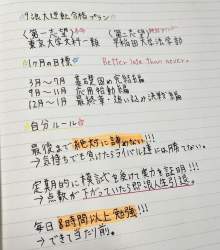 逆転大逆転合格プラン
<第一志望> <第二志望>
東京大学文科一類 早稲田大学法学部
1ヶ月の目標 Better late than never.
3月〜7月 基礎固め完結編
8月〜11月 応用始動編
12月〜1月 最終章・追い込み決戦編
自分ルール
最後まで絶対に諦めない!!!
→気持ちでも負けたらライバル達には勝てない。
定期的に模試を受けて実力を証明!!!
→点数が下がっていたら即浪人生引退。
毎日8時間以上勉強!!!
→できて当たり前。